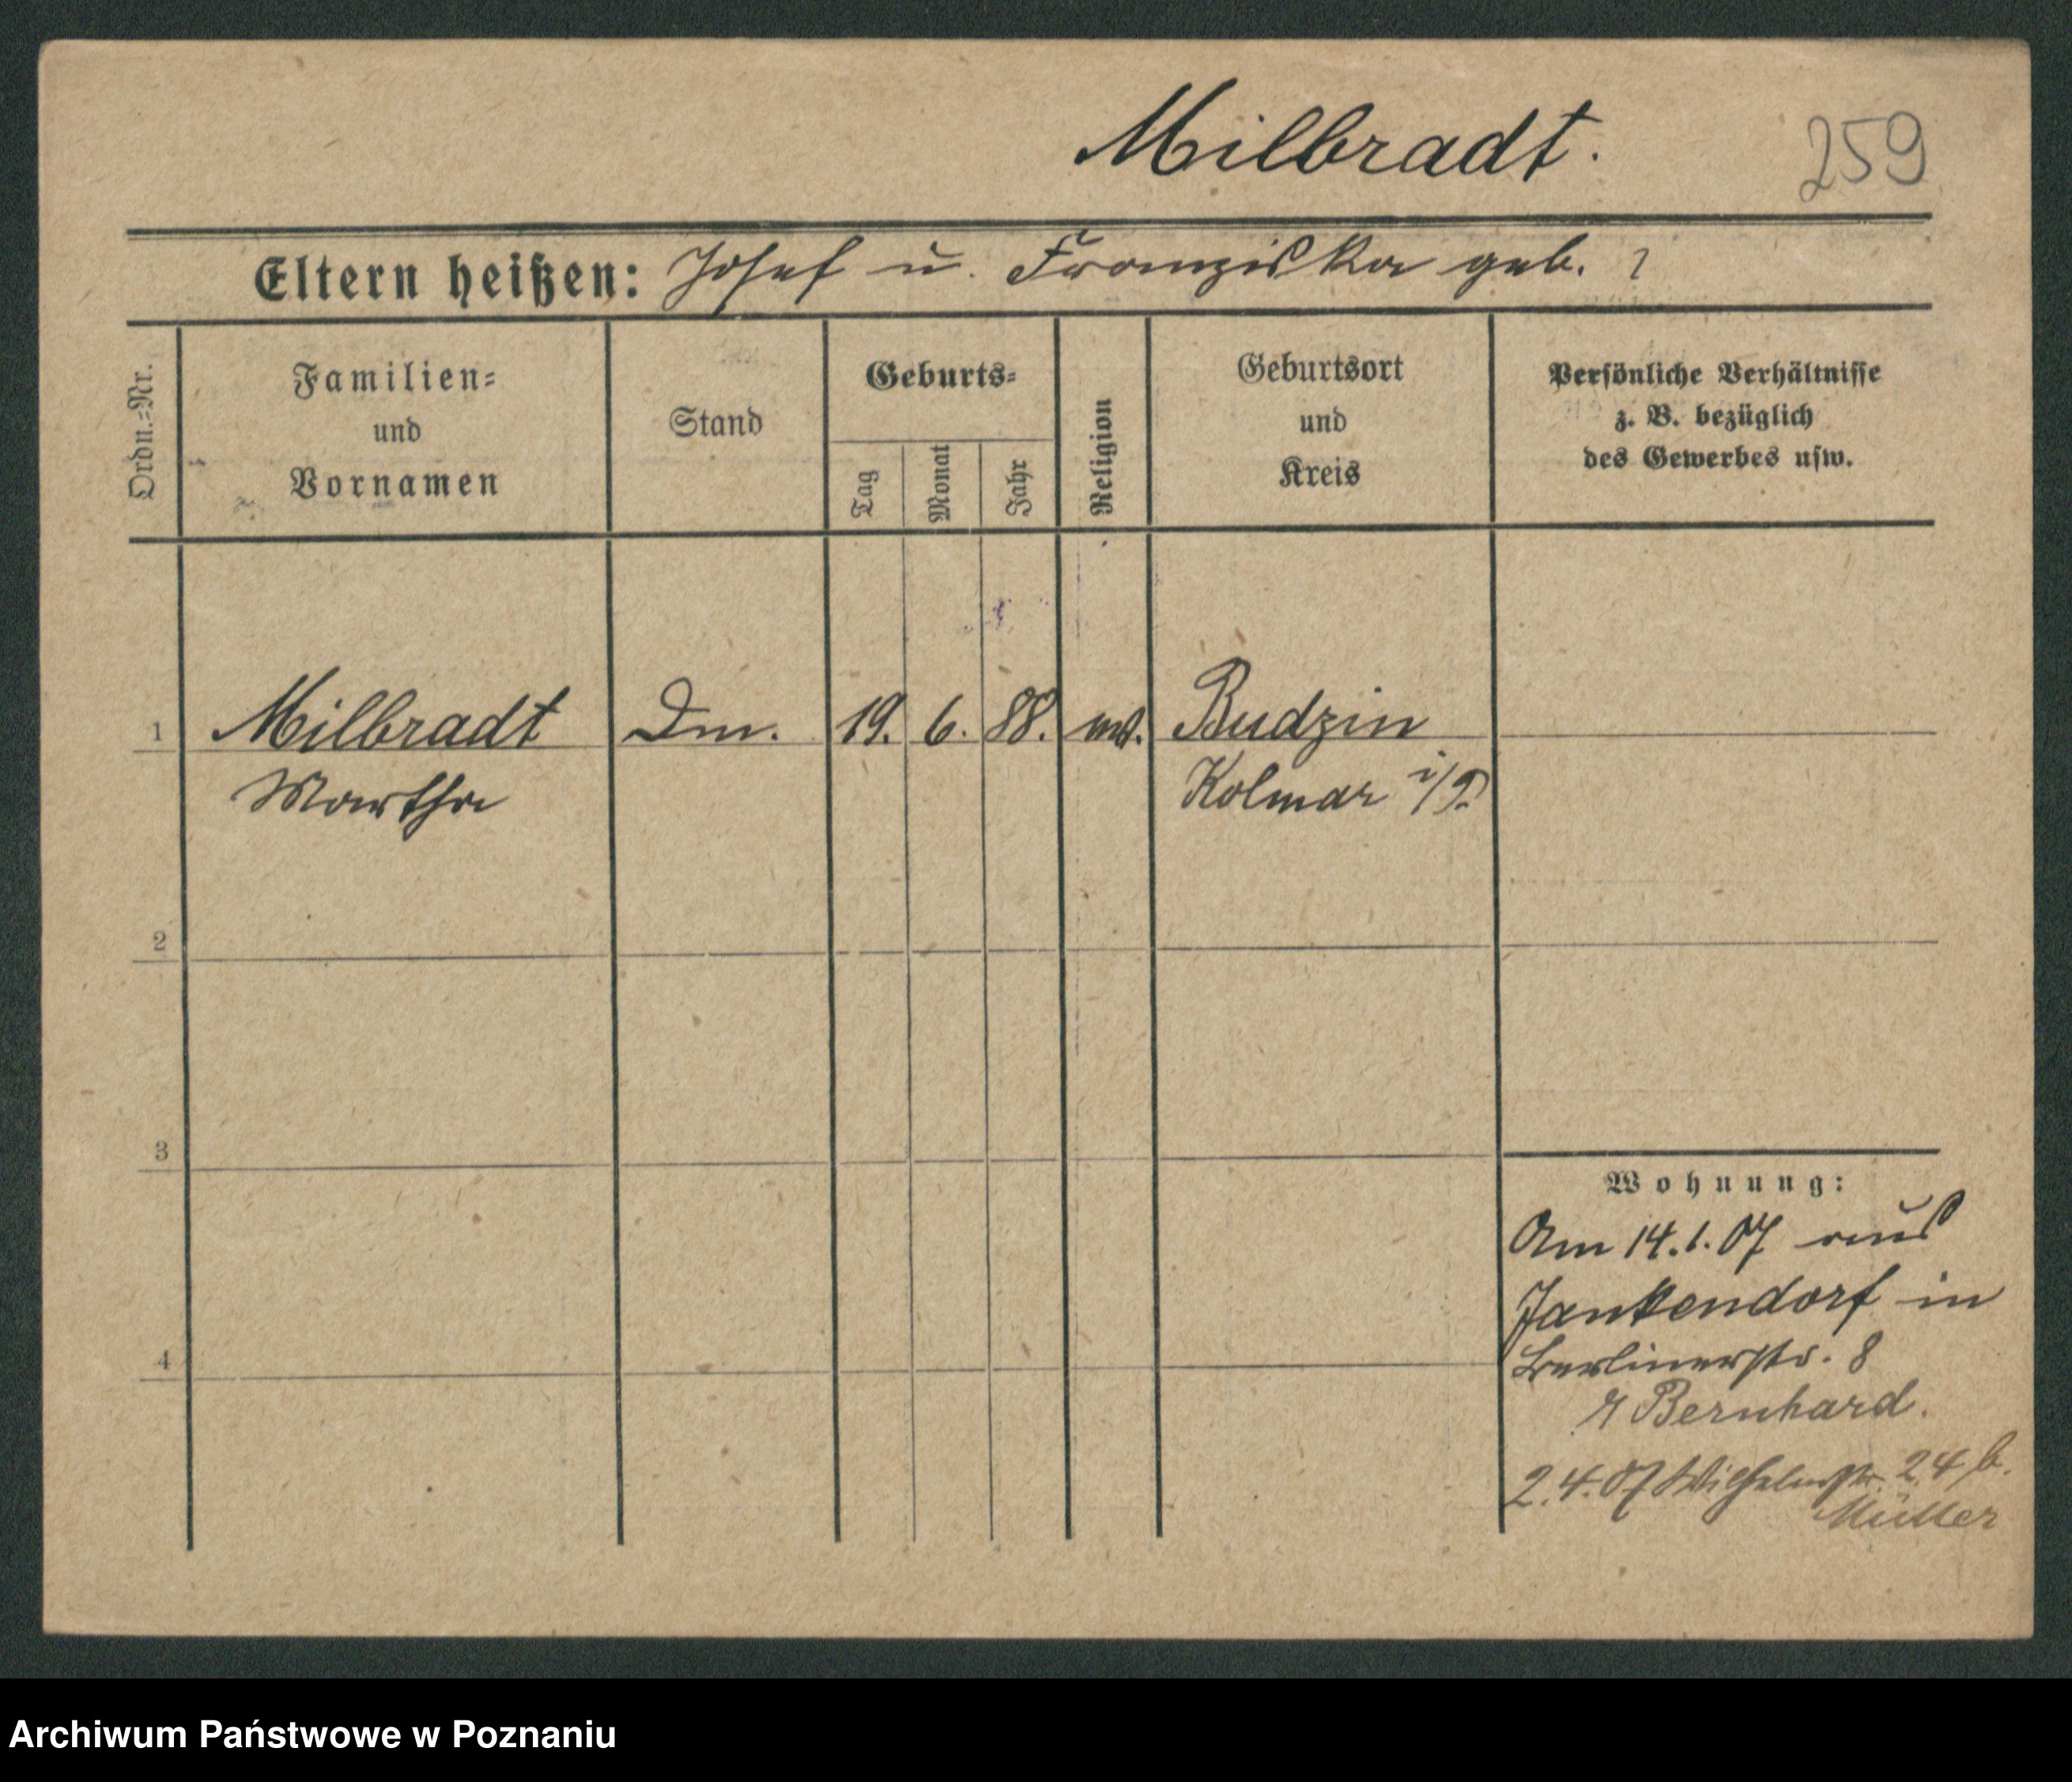 Milbradt.
259
Eltern heißen: Josef u. Franziska geb. ?
Ordn.=Nr.
Familien=
und
Vornamen
Stand
Geburts=
Tag
Monat
Jahr
Religion
Geburtsort
und
Kreis
Persönliche Verhältnisse
z. B. bezüglich
des Gewerbes usw.
1 Milbradt 19. 6. 88. Budzin
Martha Kolmar i/P.
2
3
4
Wohnung:
Am 14.1.07 aus
Jankendorf in
Berlinerstr. 8
Bernhard.
2.4.07 Wilhelmstr. 24 b.
Müller
Archiwum Państwowe w Poznaniu